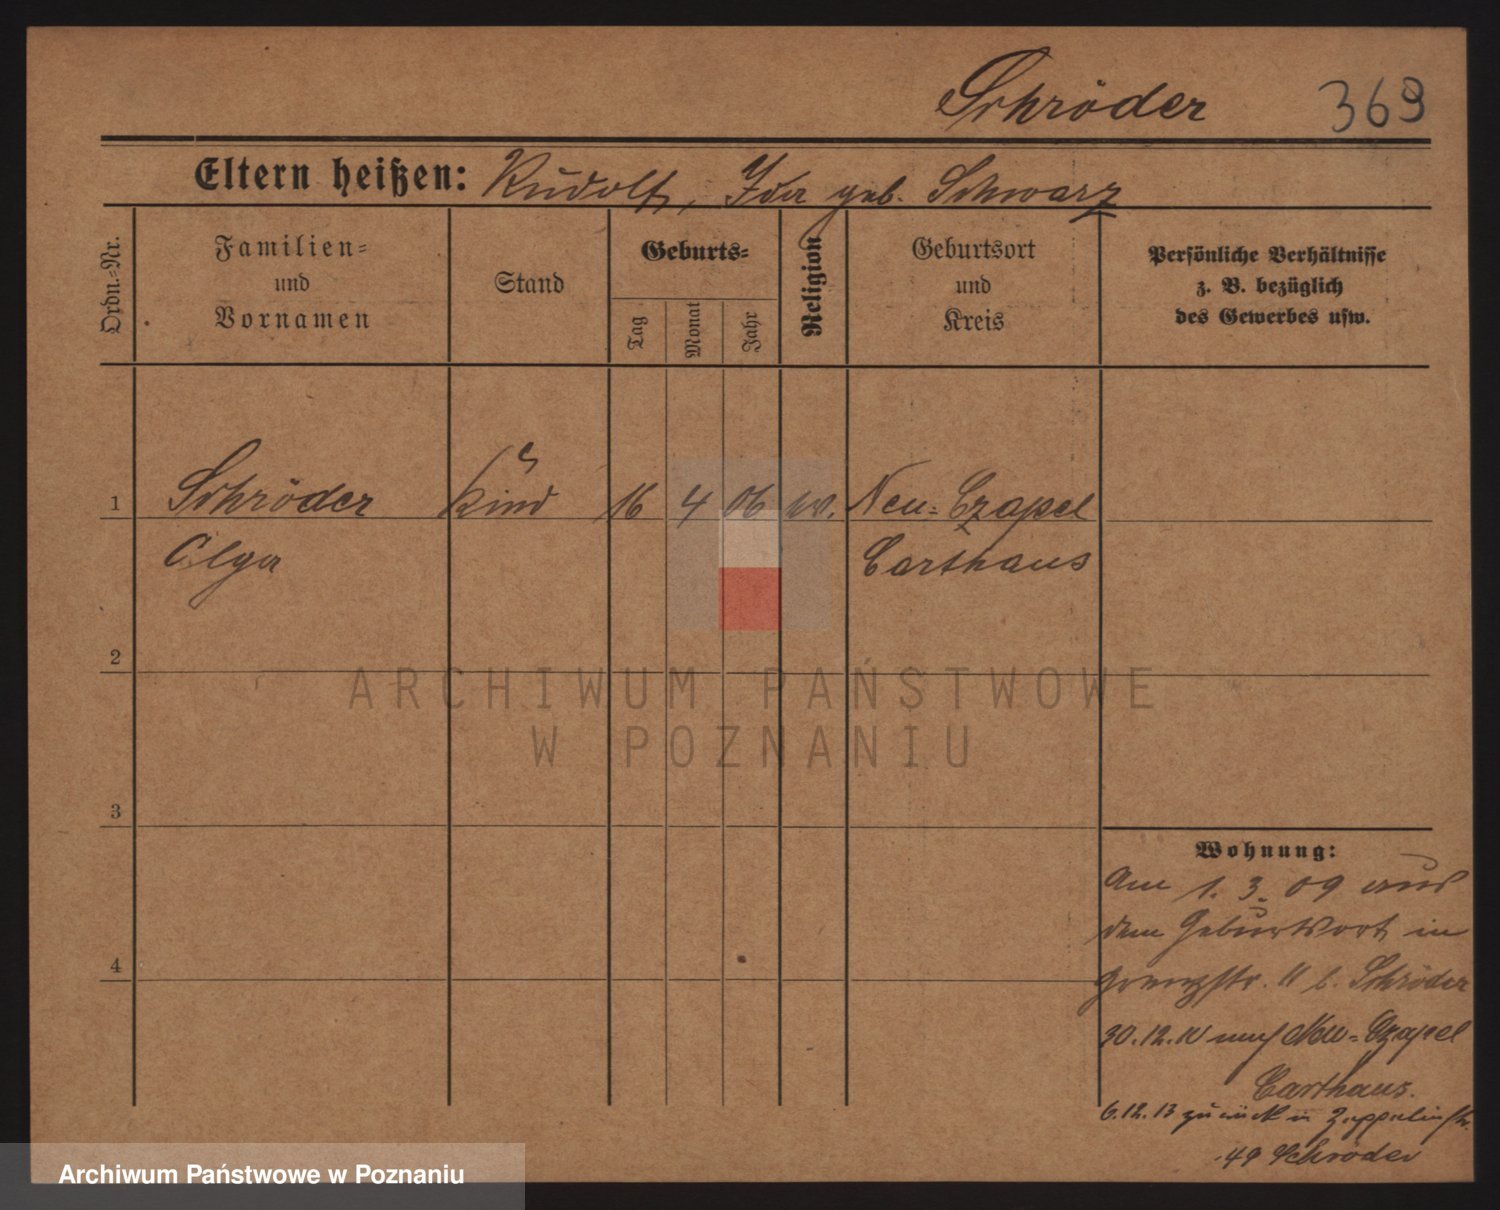 Schröder 369
Eltern heißen: Rudolf, Ida geb. Schwarz
Ordn.=Nr.
Familien=
und
Vornamen
Stand
Geburts=
Tag
Monat
Jahr
Religion
Geburtsort
und
Kreis
Persönliche Verhältnisse
z. B. bezüglich
des Gewerbes usw.
1 Schröder Kind 16 4 06 ev. Neu=Czapel
Olga Carthaus
2
3
4
Wohnung:
Am 1.3.09 aus
dem Geburtsort in
Grenzstr. 11 b. Schröder
30.12.10 nach Neu=Czapel
Carthaus.
6.12.13 zurück in Zeppelinstr.
49 Schröder
ARCHIWUM PAŃSTWOWE
W POZNANIU
Archiwum Państwowe w Poznaniu